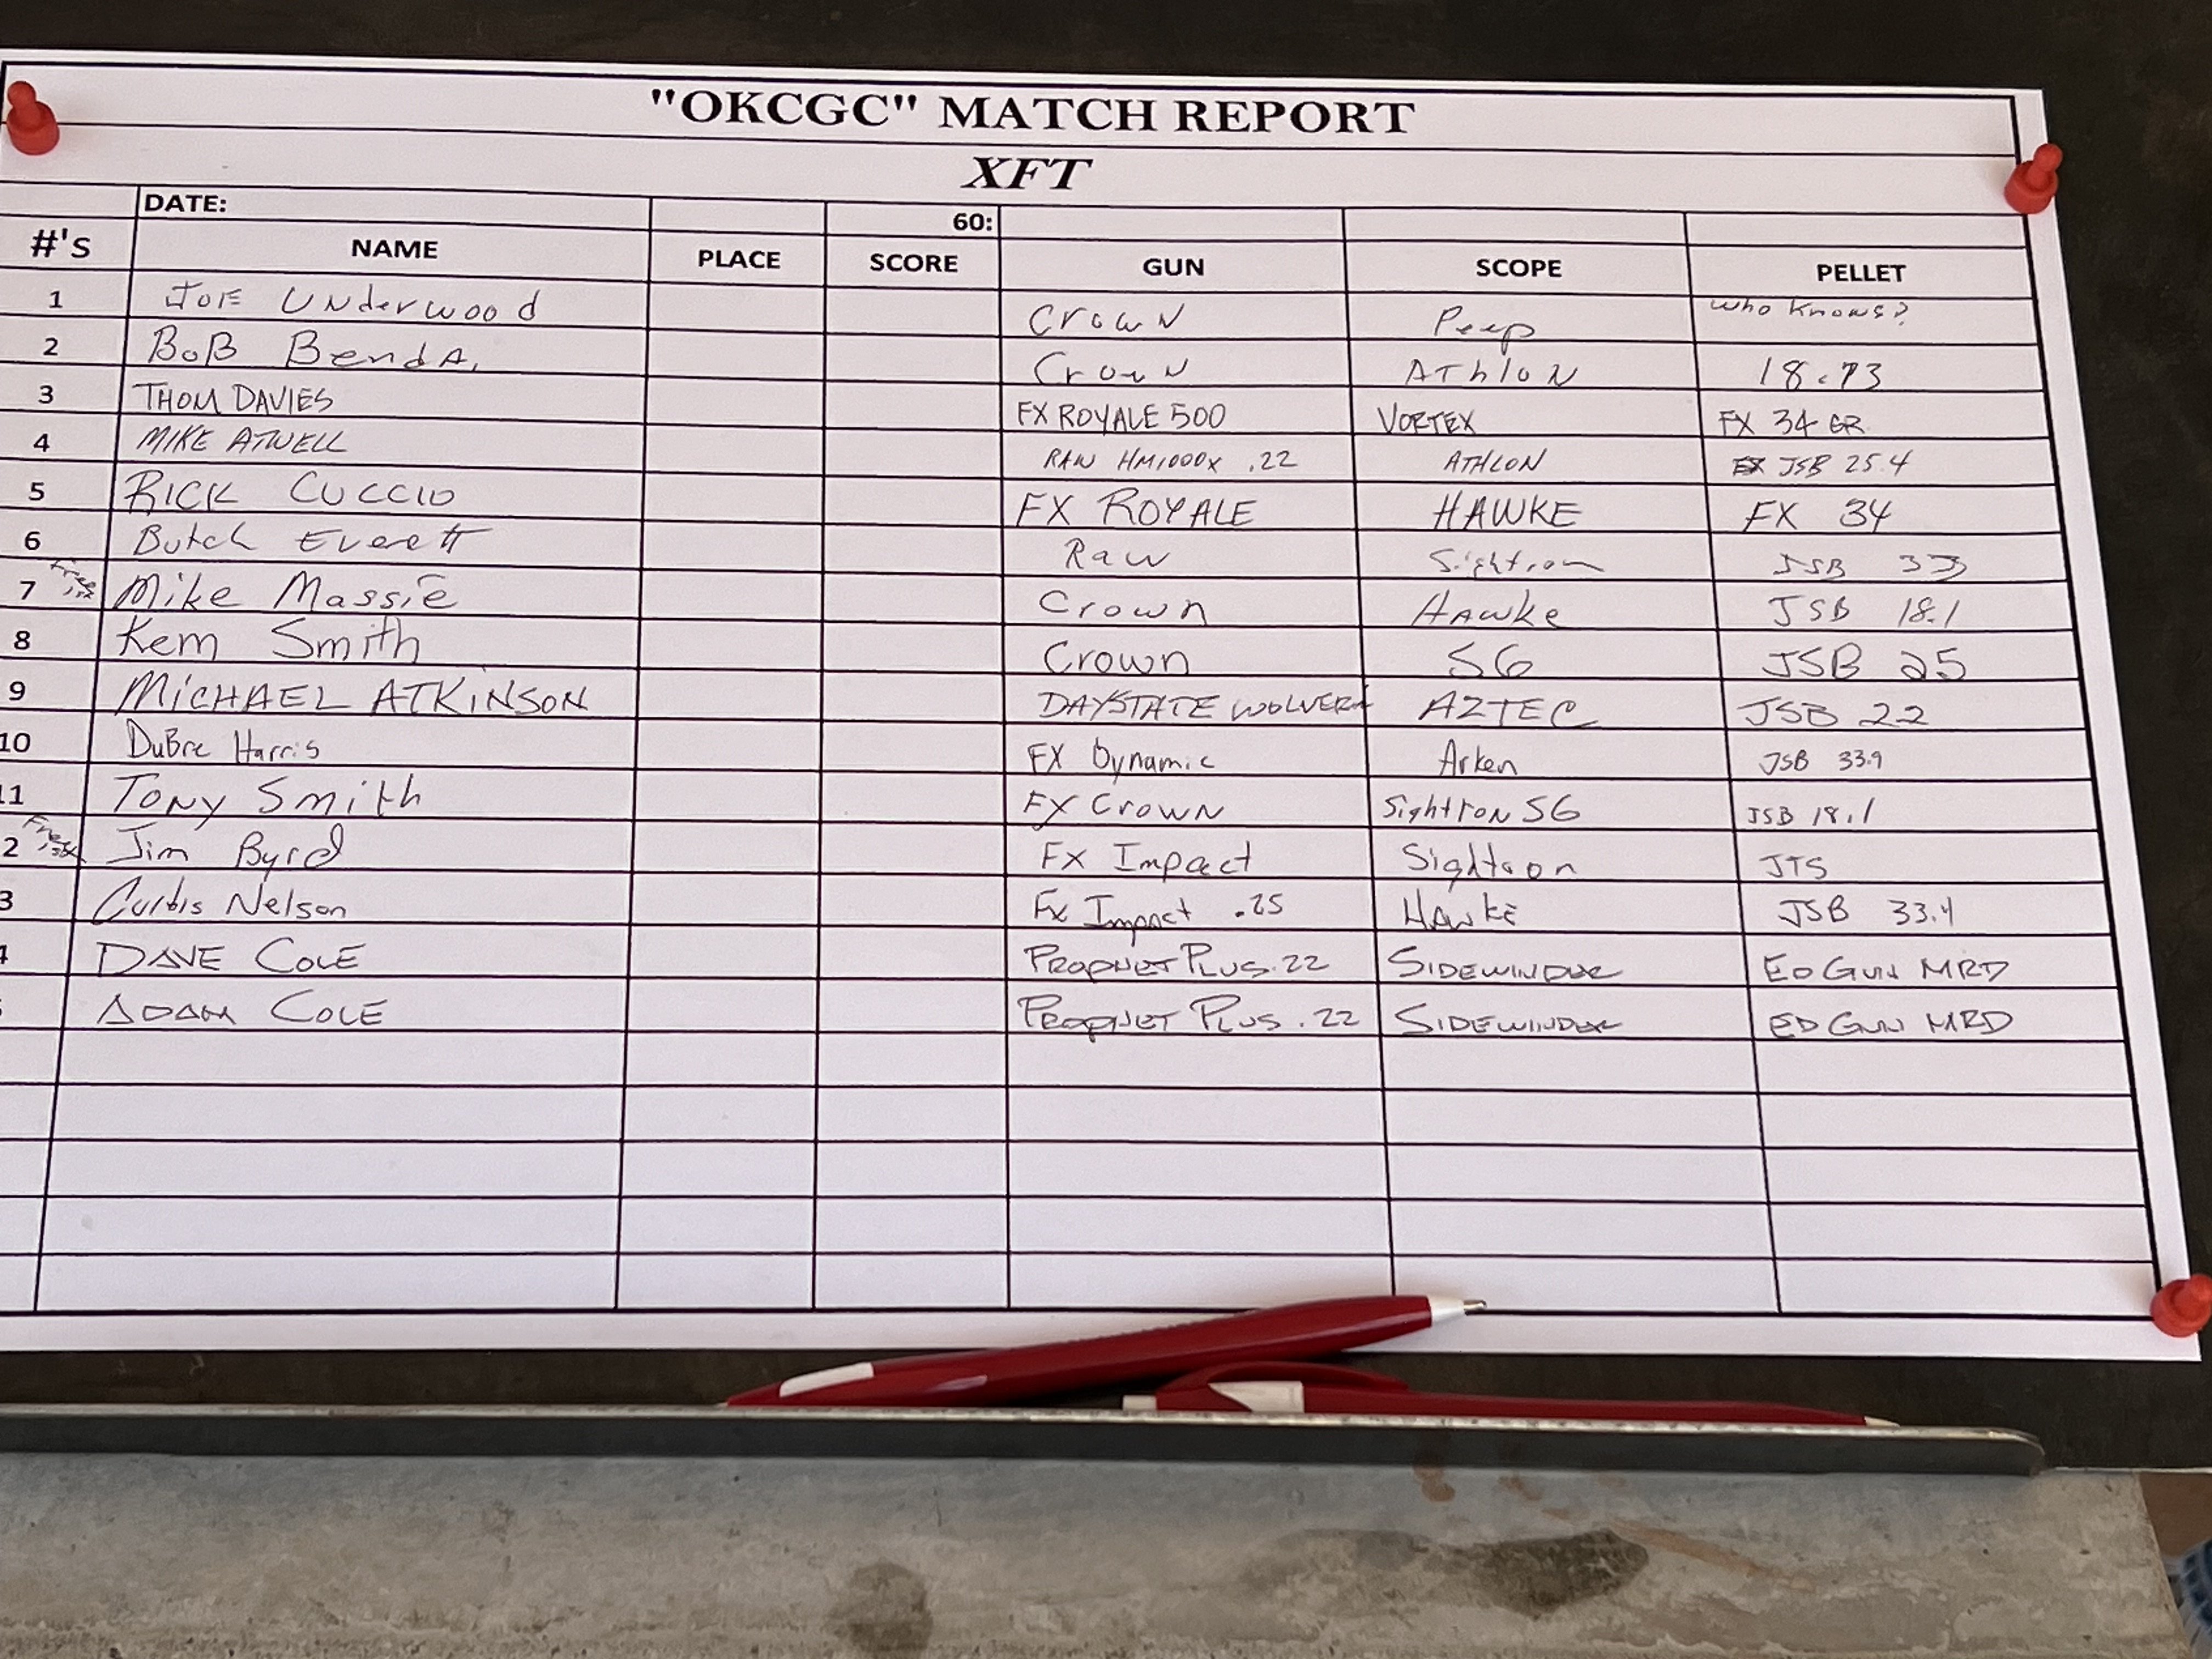 "OKCGC" MATCH REPORT
XFT
DATE: 60:
#'s NAME PLACE SCORE GUN SCOPE PELLET
1 JOE Underwood Crown Peep who knows?
2 BOB Benda. Crown AThlon 18.73
3 THOM DAVIES FX ROYALE 500 VORTEX FX 34 GR
4 MIKE ATWELL RAW HM1000X .22 ATHLON JSB 25.4
5 RICK CUCCIO FX ROYALE HAWKE FX 34
6 Butch Everett Raw Sightron JSB 33
7 Mike Massie Crown Hawke JSB 18.1
8 Kem Smith Crown S6 JSB 25
9 MICHAEL ATKINSON DAYSTATE WOLVERI AZTEC JSB 22
10 DuBre Harris FX Dynamic Arken JSB 33.9
11 Tony Smith FX Crown Sightron S6 JSB 18.1
2 Jim Byrd FX Impact Sightron JTS
3 Curtis Nelson Fx Impact .25 Hawke JSB 33.4
4 DAVE COLE PROPHET PLUS .22 SIDEWINDER ED GUN MRD
ADAM COLE PROPHET PLUS .22 SIDEWINDER ED GUN MRD